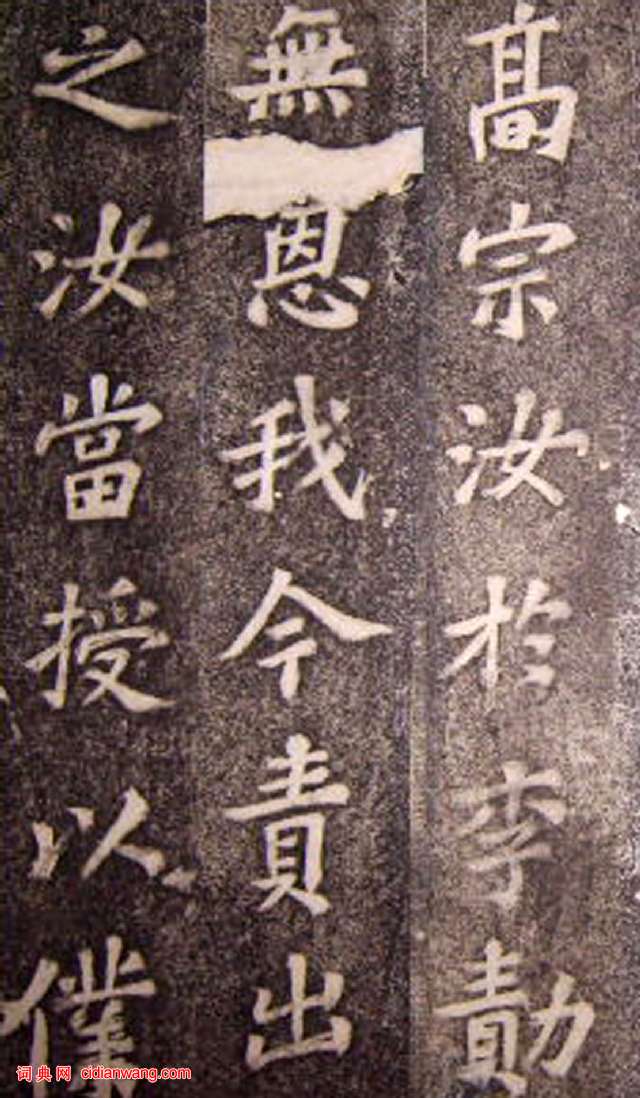 髙宗汝於李勣
無恩我今責出
之汝當授以僕
词典网 cidianwang.com